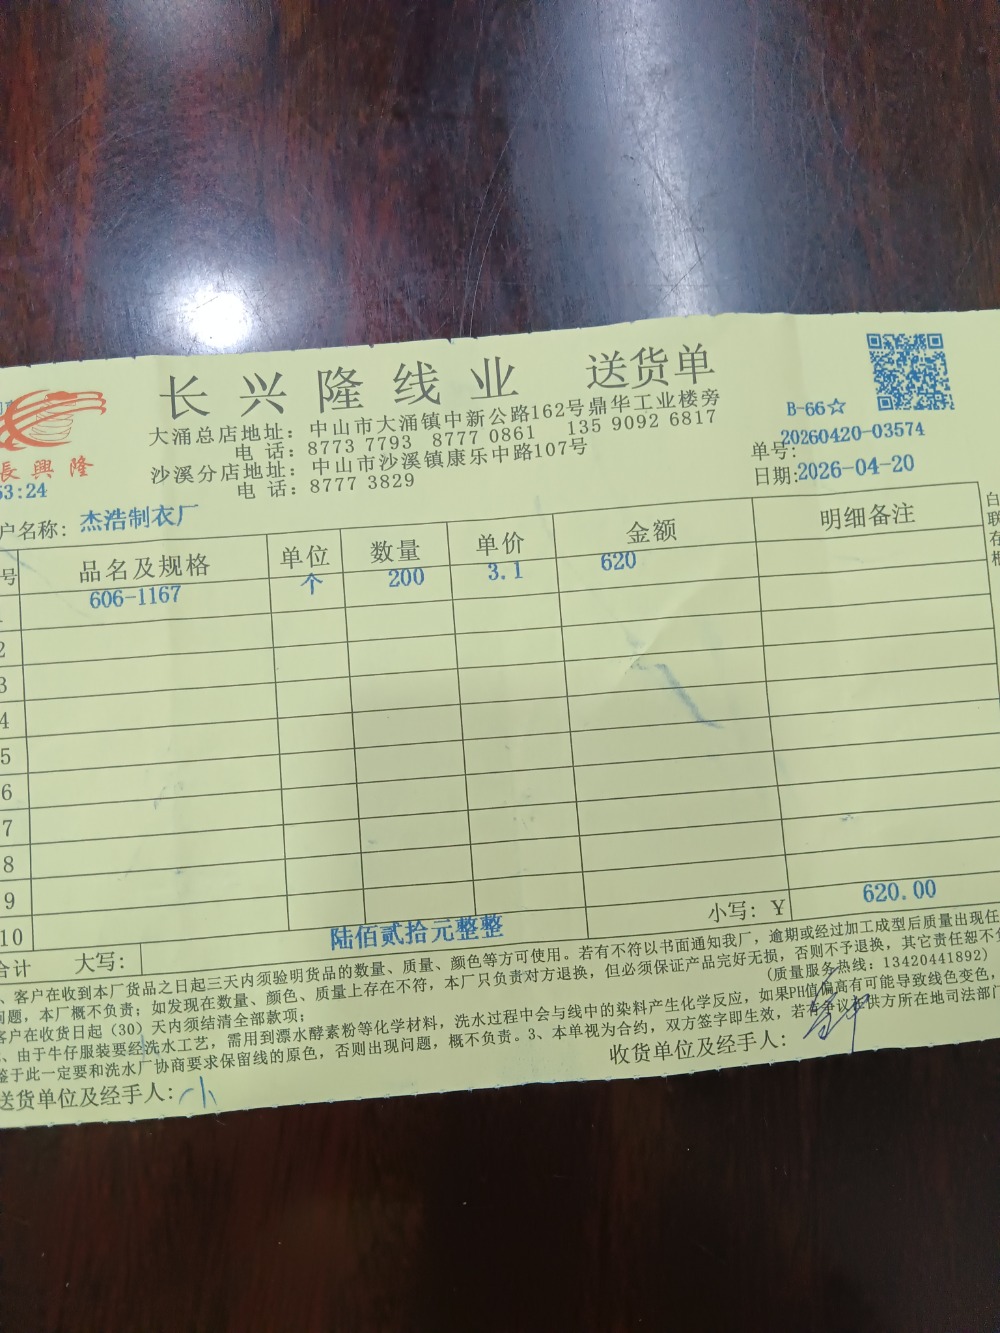 长兴隆线业 送货单
大涌总店地址：中山市大涌镇中新公路162号鼎华工业楼旁
电 话：8773 7793 8777 0861 135 9092 6817
沙溪分店地址：中山市沙溪镇康乐中路107号
电 话：8777 3829
長興隆
53:24
B-66☆
单号：20260420-03574
日期:2026-04-20
户名称：杰浩制衣厂
号 品名及规格 单位 数量 单价 金额 明细备注
606-1167 个 200 3.1 620
2
3
4
5
6
7
8
9
10
合计 大写： 陆佰贰拾元整整 小写：Y 620.00
、客户在收到本厂货品之日起三天内须验明货品的数量、质量、颜色等方可使用。若有不符以书面通知我厂，逾期或经过加工成型后质量出现任
问题，本厂概不负责；如发现在数量、颜色、质量上存在不符，本厂只负责对方退换，但必须保证产品完好无损，否则不予退换，其它责任恕不
客户在收货日起（30）天内须结清全部款项； （质量服务热线：13420441892）
、由于牛仔服装要经洗水工艺，需用到漂水酵素粉等化学材料，洗水过程中会与线中的染料产生化学反应，如果PH值偏高有可能导致线色变色，
鉴于此一定要和洗水厂协商要求保留线的原色，否则出现问题，概不负责。3、本单视为合约，双方签字即生效，若有争议在供方所在地司法部门
送货单位及经手人：小 收货单位及经手人：
白
联
存
根